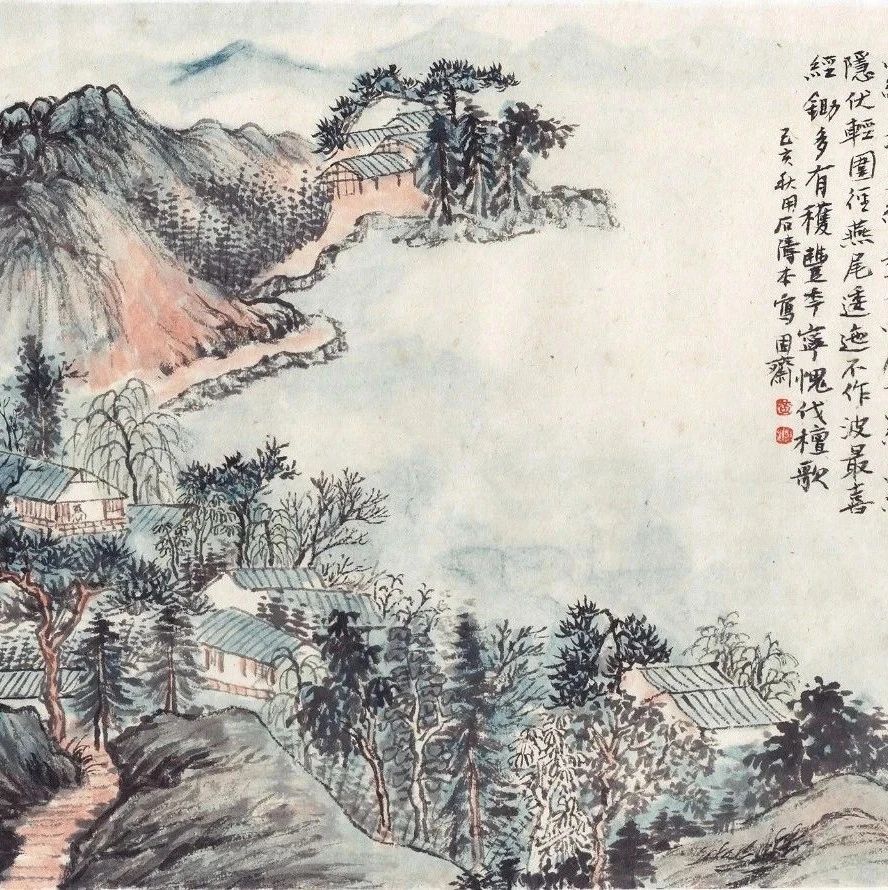 隱伏輕圍徑燕尾逶迤不作波最喜
經鋤多有穫豐年寧愧伐檀歌
己亥秋用石濤本寫 固齋